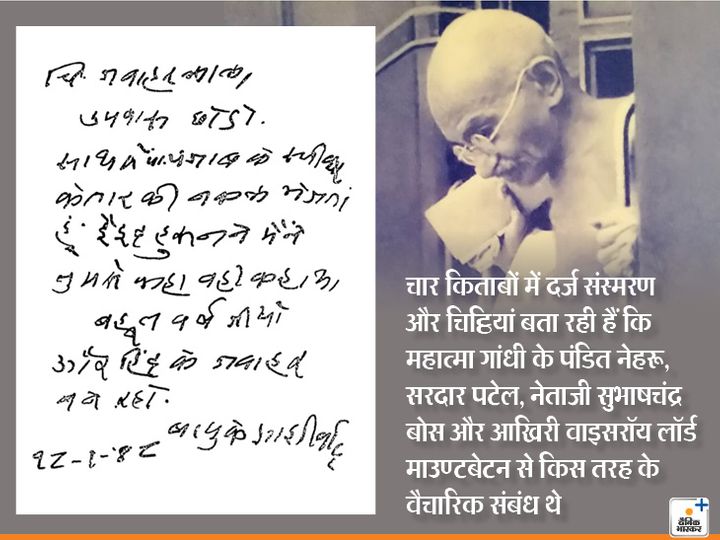 चि. जवाहरलाल,
उपवास छोडो.
साथमें पं. पंजाब के स्पीकर
के तार की नकल भेजता
हूं. हुसेनने मैंने
तुमसे कहा वही कहा था.
बहूत वर्ष जीयो
और हिंद के जवाहर
बने रहो.
बापुके आशीर्वाद
१८-१-४८
चार किताबों में दर्ज संस्मरण
और चिट्ठियां बता रही हैं कि
महात्मा गांधी के पंडित नेहरू,
सरदार पटेल, नेताजी सुभाषचंद्र
बोस और आखिरी वाइसरॉय लॉर्ड
माउण्टबेटन से किस तरह के
वैचारिक संबंध थे
दैनिक
भास्कर